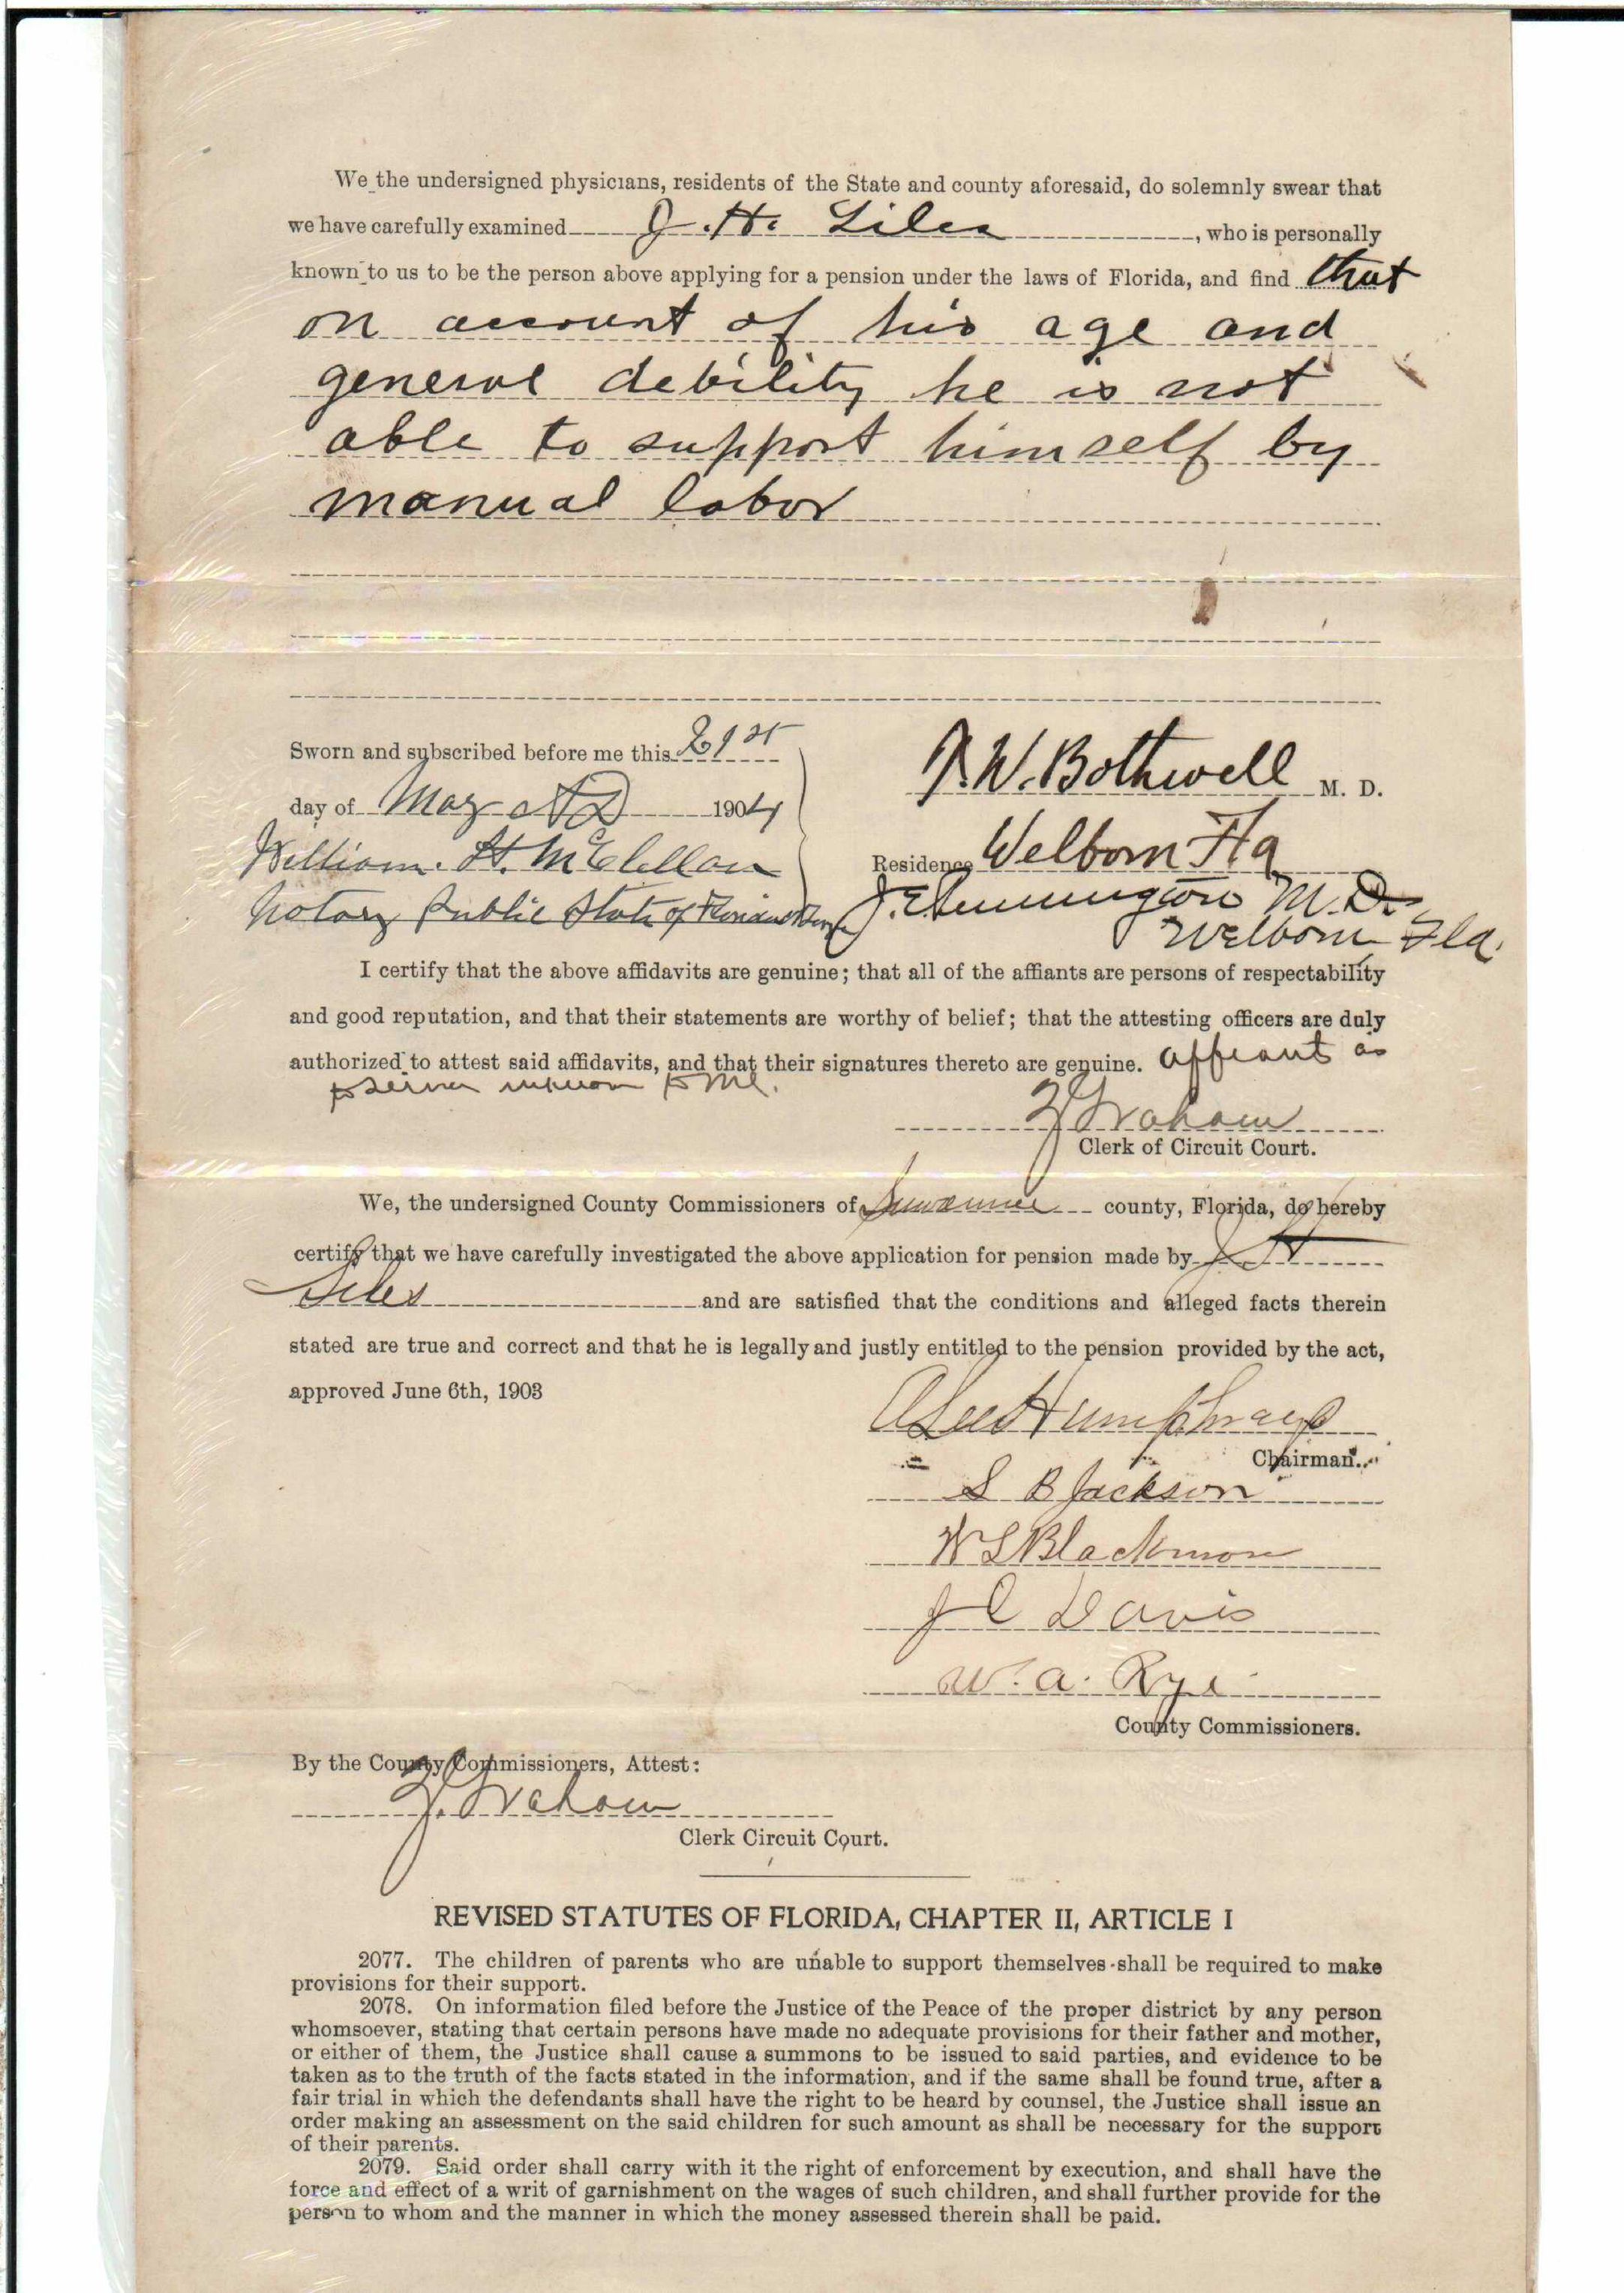 We the undersigned physicians, residents of the State and county aforesaid, do solemnly swear that
we have carefully examined J. H. Liles, who is personally
known to us to be the person above applying for a pension under the laws of Florida, and find that
on account of his age and
general debility he is not
able to support himself by
manual labor
Sworn and subscribed before me this 21st
day of May AD 1904
William. H. McClellan
Notary Public State of Florida
W. Bothwell M. D.
Residence Welborn Fla
M. D.
Welborn Fla.
I certify that the above affidavits are genuine; that all of the affiants are persons of respectability
and good reputation, and that their statements are worthy of belief; that the attesting officers are duly
authorized to attest said affidavits, and that their signatures thereto are genuine. Affiant is
to me.
Graham
Clerk of Circuit Court.
We, the undersigned County Commissioners of Suwannee county, Florida, do hereby
certify that we have carefully investigated the above application for pension made by J H
Liles and are satisfied that the conditions and alleged facts therein
stated are true and correct and that he is legally and justly entitled to the pension provided by the act,
approved June 6th, 1903
Humphreys
Chairman.
S B Jackson
W S Blackmon
J C Davis
W. A. Rye
County Commissioners.
By the County Commissioners, Attest:
Graham
Clerk Circuit Court.
REVISED STATUTES OF FLORIDA, CHAPTER II, ARTICLE I
2077. The children of parents who are unable to support themselves shall be required to make
provisions for their support.
2078. On information filed before the Justice of the Peace of the proper district by any person
whomsoever, stating that certain persons have made no adequate provisions for their father and mother,
or either of them, the Justice shall cause a summons to be issued to said parties, and evidence to be
taken as to the truth of the facts stated in the information, and if the same shall be found true, after a
fair trial in which the defendants shall have the right to be heard by counsel, the Justice shall issue an
order making an assessment on the said children for such amount as shall be necessary for the support
of their parents.
2079. Said order shall carry with it the right of enforcement by execution, and shall have the
force and effect of a writ of garnishment on the wages of such children, and shall further provide for the
person to whom and the manner in which the money assessed therein shall be paid.